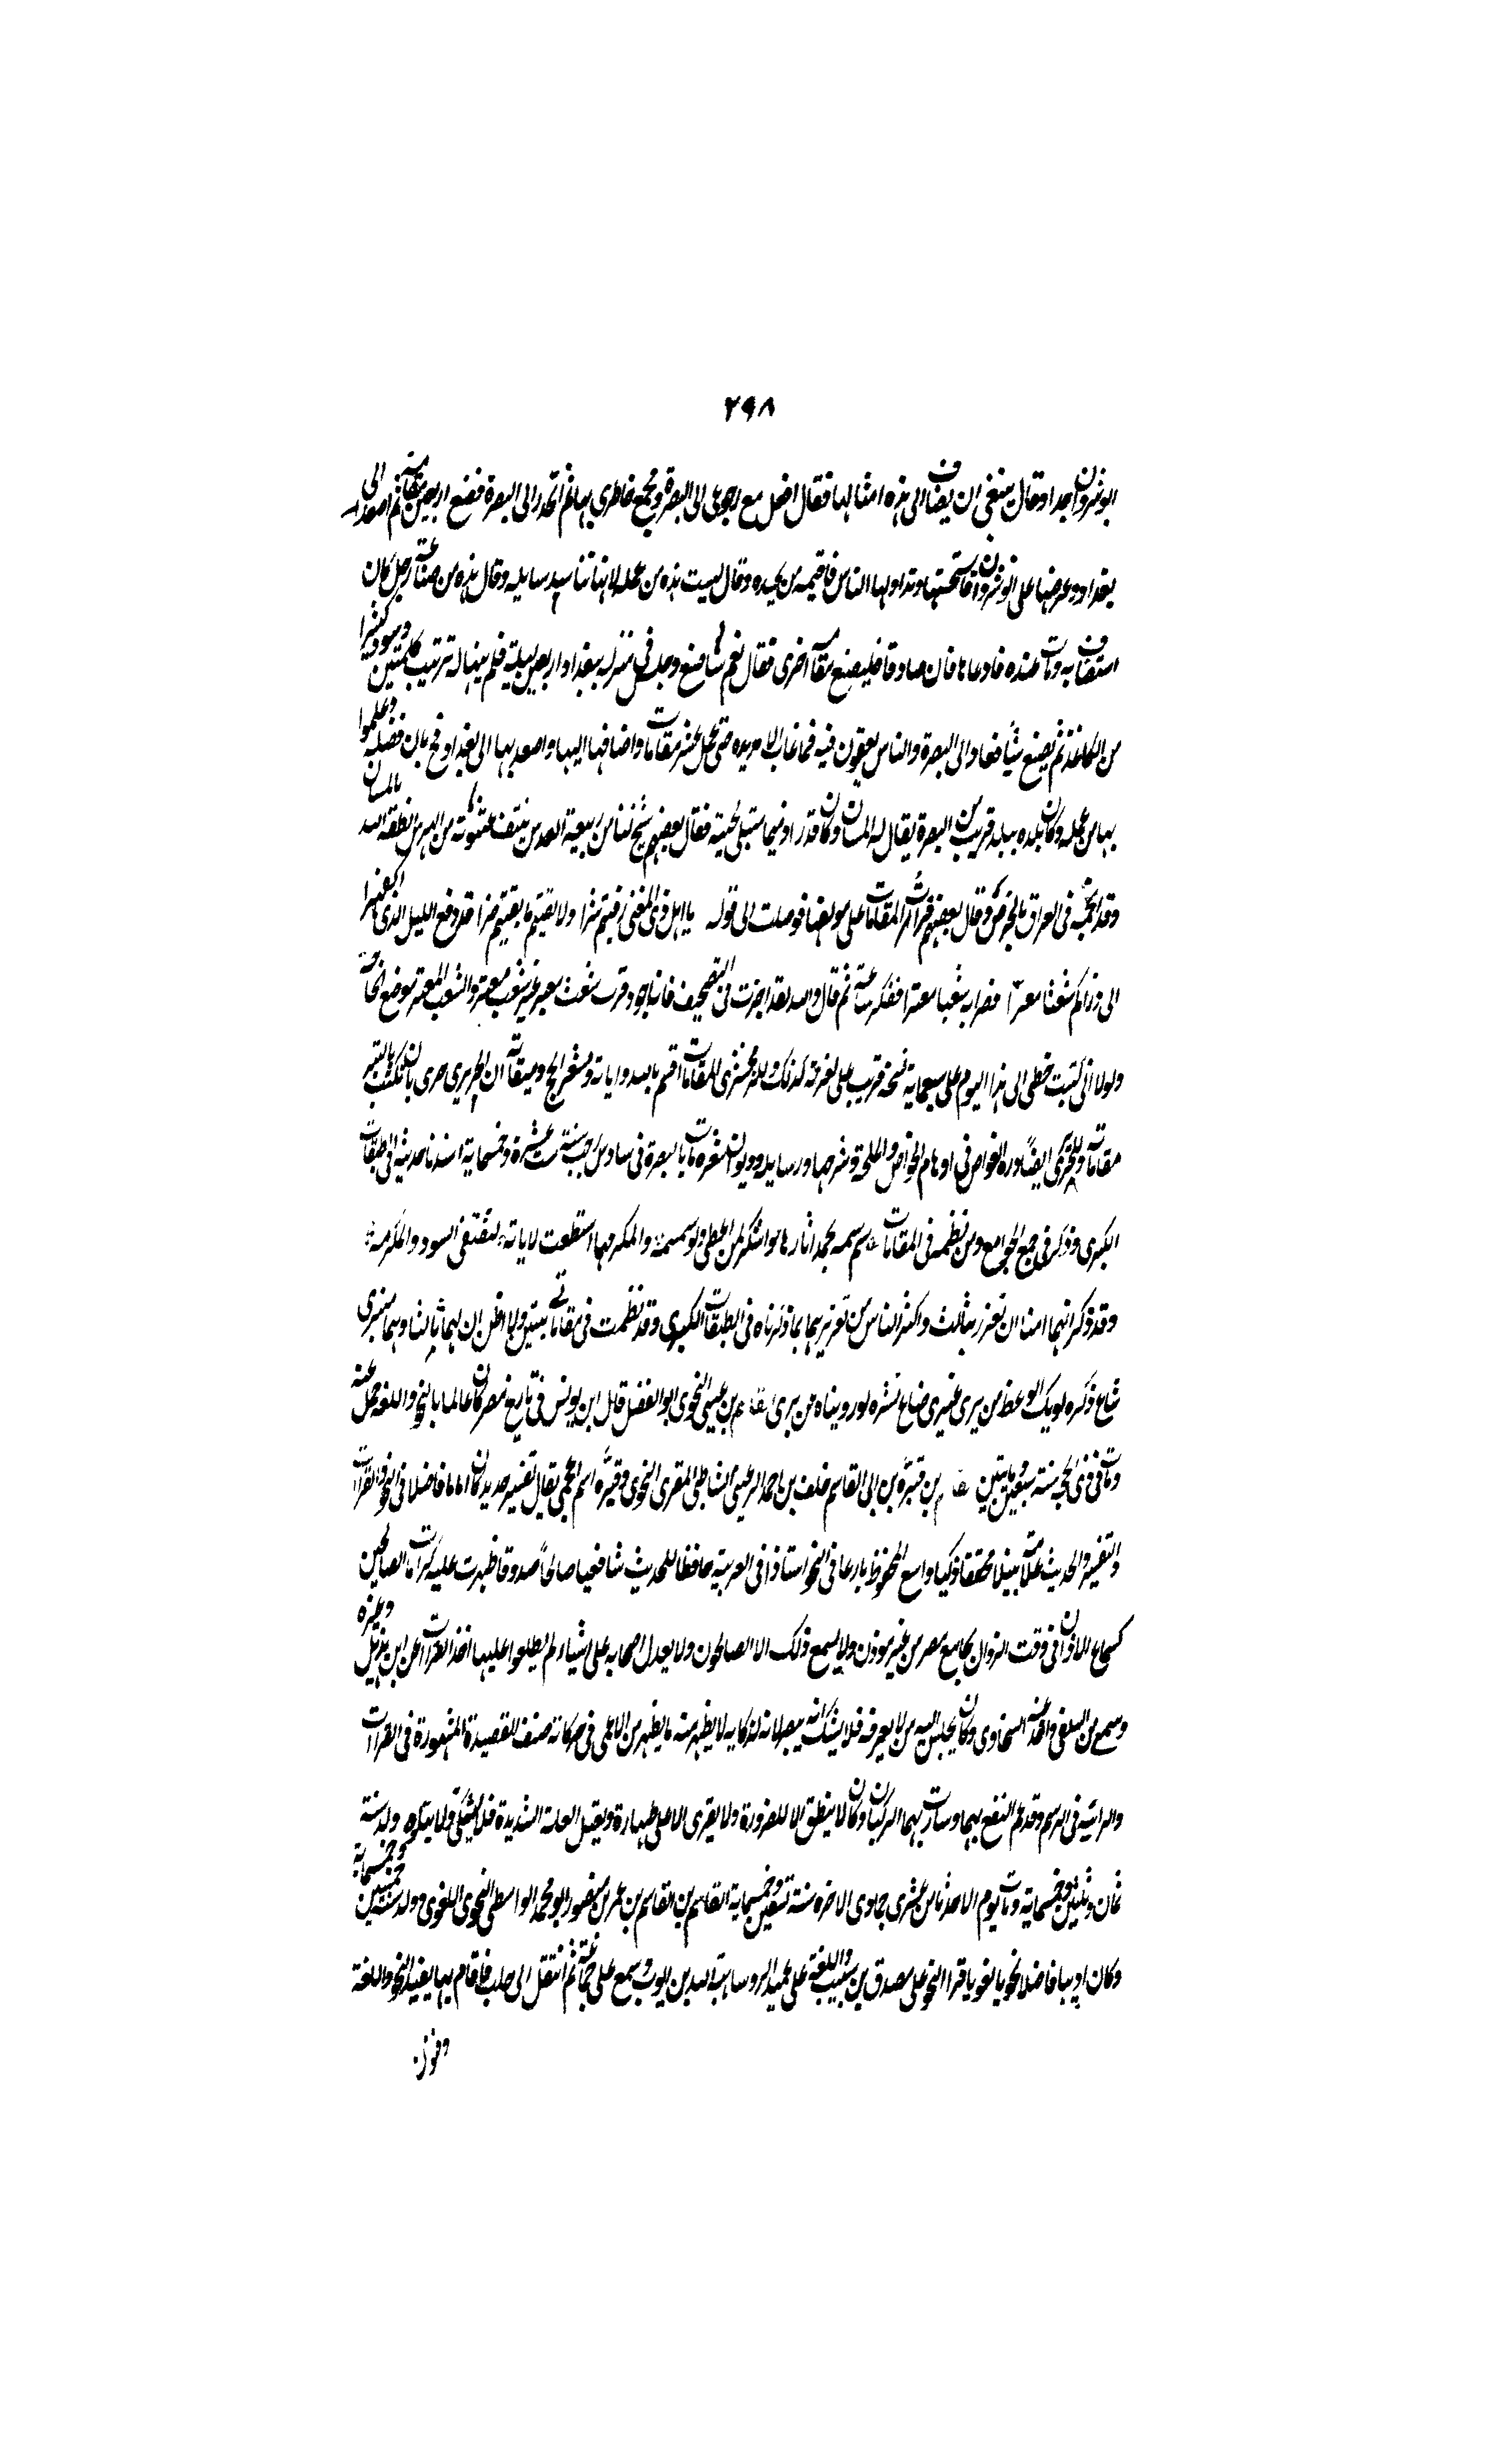 ٢٩٨
انوشروان جدا وقال ينبغي ان يضاف الى هذه امثالها فقال افعل مع رجوعى الى البصرة وتجمع خاطري بها ثم انحدر الى البصرة فصنع اربعين مقامة ثم اصعد الى
بغداد وعرضها على انوشروان فاستحسنها وتداولها الناس فاتهمه من يحسده وقال ليست هذه من عمله لانها تناسب رسايله وقال هذه من صناعة رجل كان
استضاف به ومات عنده فادعاها فان صادقا فليصنع مقامة اخرى فقال نعم ساصنع وجلس في منزله ببغداد اربعين ليلة فلم يتهيا له ترتيب كلمتين وسود كثيرا
من الكاغذ ثم يصنع شيئا فعاد الى البصرة والناس يقعون فيه فما غاب الا مديدة حتى عمل عشر مقامات واضافها اليها واصعد بها الى بغداد فح بان فضله وعلموا
بها من عمله وكان بلده ببلد قريب من البصرة يقال له المسان وكان قذرا وفيما مبتلى بحيته فقال بعضهم شيخ لنا من ربيعة الفرس ينتف عثنونه من الهوس انطقه الله بالمسان
وقد الجمه في العراق بالخرس وقال بعضهم قرات المقامات على مولفها فوصلت الى قوله يا اهل ذى المغنى وقيتم شرا ولا لقيتم ما بقيتم ضرا قد دفع الليل الذى اكفهرا
الى ذراكم شعثا معرا فصرا به سغبا معترا ففكر ساعة ثم قال والله لقد اجزت في التصحيف فانه اجود فرب شعث معبر غير سغب معتر والسغب المعتر موضع الحاجة
ولولا انى كتبت خطى الى هذا اليوم على سبعماية نسخة قريب على لغيرته كذلك وللزمخشرى للمقامات اقسم بالله واياته ومشعر الحج وميقاته ان الحريري حرى بان تكتب بالتبر
مقاماته وللحريرى ايضا درة الغواص في اوهام الخواص والملحة وشرحها ورسايله وديوان شعره مات بالبصرة في سادس رجب سنة ست عشرة وخمسماية اسندنا حديثه في الطبقات
الكبرى وذكر في جمع الجوامع ومن نظمه في المقامات سم سمة تحمد اثارها واشكر لمن اعطى ولو سمسمة والمكر مهما استطعت لا ياته لتقتفى السود والمكرمة
وقد ذكر انهما امنا ان تعزز بثالث واكثر الناس من تعزيزهما بما ذكرناه في الطبقات الكبرى وقد نظمت في مقاماتى بيتين ولا اظن ان لهما ثالثا وهما سرى
شاع ذكره لو يك الوعظ من يرى غيرى ضاع نشره لو روينا من يرى القاسم بن عيسى النحوى ابو الفضل قال ابن يونس في تاريخ مصر كان عالما بالنحو واللغة حمل عنه
ومات في ذى الحجة سنة سبعين وماتين القاسم بن فيره بن ابى القاسم خلف بن احمد الرعينى الشاطبى المقرى النحوى وفيره اسم اعجمى يقال تفسيره حديد كان اماما فاضلا في النحو والقراات
والتفسير والحديث علامة نبيلا محققا ذكيا واسع المحفوظ بارعا في النحو استاذا في العربية حافظا للحديث شافعيا صالحا صدوقا ظهرت عليه كرامات الصالحين
كسماع الاذان في وقت الزوال بجامع مصر من غير موذن ولا يسمع ذلك الا الصالحون ولا يعدل اصحابه على اشياء لم يطلعوا عليها اخذ القراات عن ابن هذيل وغيره
وسمع من السلفى واخذ عنه السخاوى وكان يجلس اليه من لا يعرفه فلا يشك انه يبصر لانه لذكايه لا يظهر منه ما يظهر من الاعمى في حركاته صنف القصيدة المشهورة في القراات
والرائية في الرسم وقد عم النفع بهما وسارت بهما الركبان وكان لا ينطق الا للضرورة ولا يقرى الا على طهارة ويعتل العلة الشديدة فلا يشتكى ولا يتاوه ولد سنة
ثمان وثلثين وخمسماية ومات يوم الاحد ثامن عشرى جمادى الاخرة سنة تسعين وخمسماية القاسم بن القاسم بن عمر بن منصور ابو محمد الواسطى النحوى اللغوى ولد سنة خمسين وخمسماية
وكان اديبا فاضلا نحويا لغويا قرا النحو على مصدق بن شبيب واللغة على عميد الروسا هبة الله بن ايوب وسمع على جماعة ثم انتقل الى حلب فاقام بها يفيد النحو واللغة
وفنون